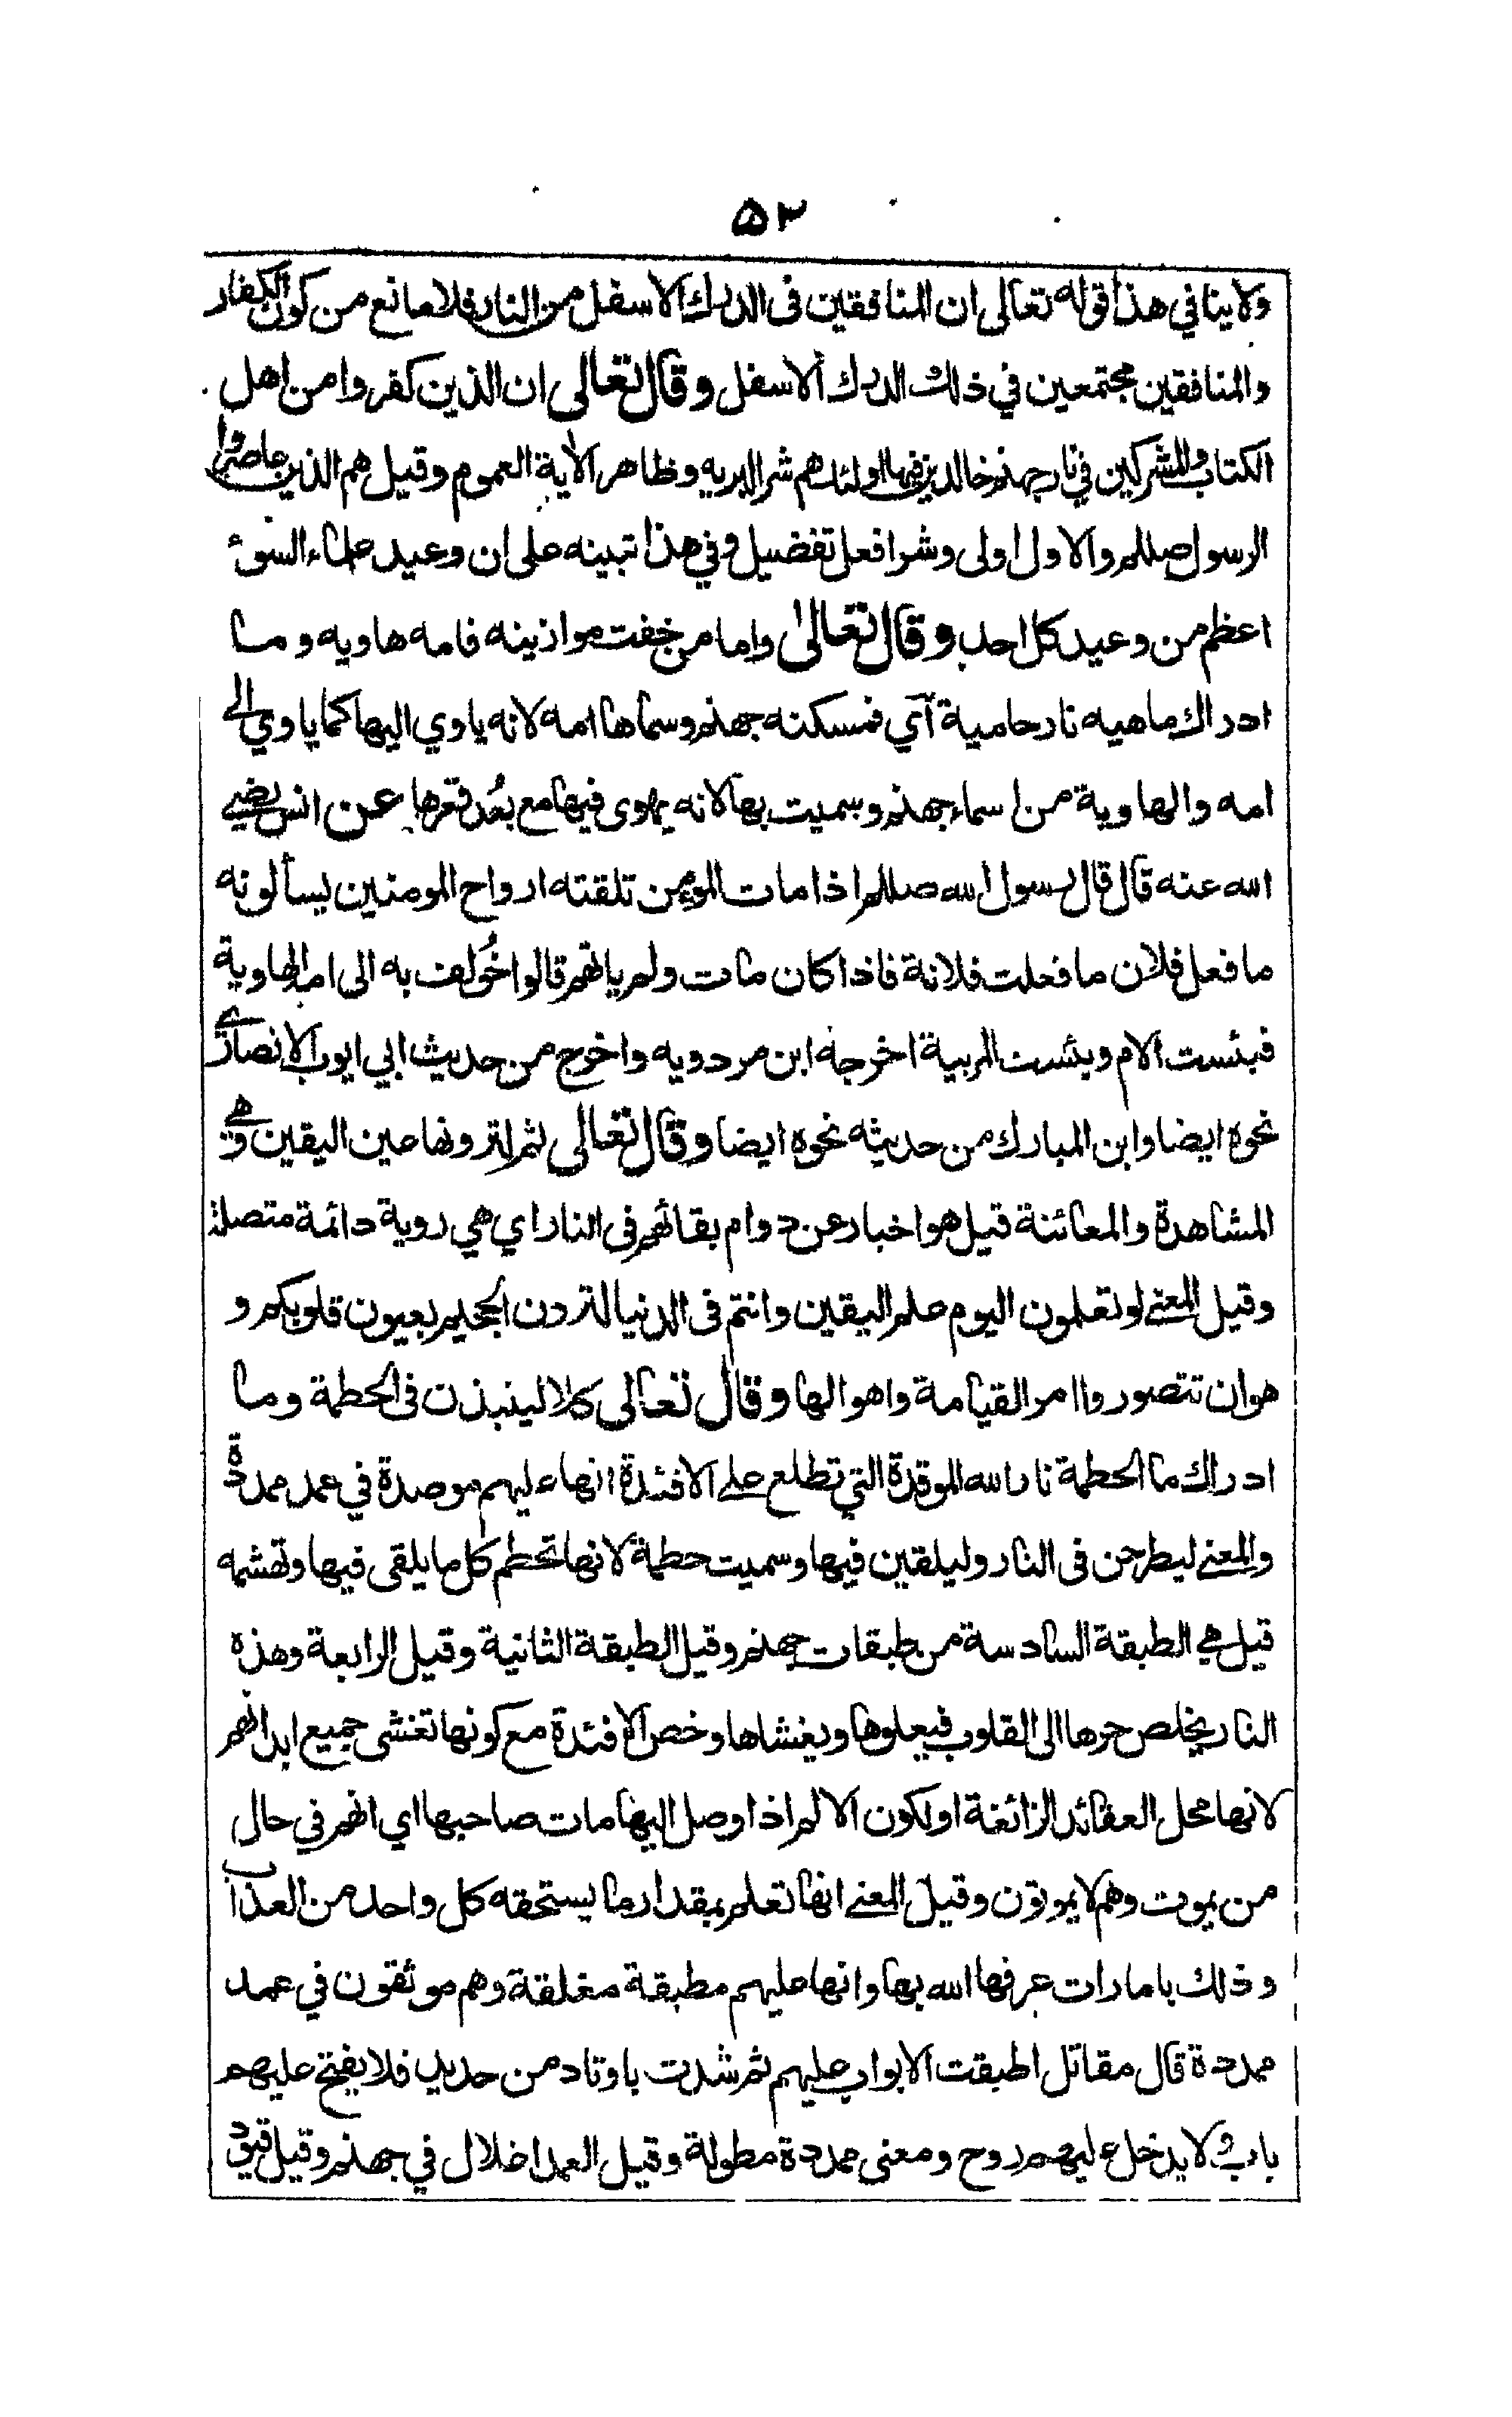 ٥٣
ولاينافي هذا قوله تعالى ان المنافقين فى الدرك الاسفل من النار فلا مانع من كون الكفار
والمنافقين مجتمعين في ذلك الدرك الاسفل وقال تعالى ان الذين كفروا من اهل
الكتاب والمشركين في نار جهنم خالدين فيها اولئك هم شر البريه وظاهر الاية العموم وقيل هم الذين عاصروا
الرسول صللم والاول اولى وشر افعل تفضيل وفي هذا تبينه على ان وعيد علماء السوئ
اعظم من وعيد كل احد وقال تعالى واما من خفت موازينه فامه هاويه وما
ادراك ماهيه نار حامية آي فمسكنه جهنم وسماها امه لانه ياوي اليها كما ياوي الى
امه والهاوية من اسماء جهنم وسميت بها لانه يهوى فيها مع بُعد قعرها عن انس رضي
الله عنه قال قال رسول الله صللم اذا مات المومن تلقته ارواح المومنين يسألونه
ما فعل فلان ما فعلت فلانة فاذا كان مات ولم ياتهم قالوا خُولف به الى امه الهاوية
فبئست الام وبئست المربية اخرجه ابن مردويه واخرج من حديث ابي ايوب الانصاري
نحوه ايضا وابن المبارك من حديثه نحوه ايضا وقال تعالى ثم لترونها عين اليقين وهي
المشاهدة والمعائنة قيل هو اخبار عن دوام بقائهم فى النار اي هي روية دائمة متصلة
وقيل المعنے لو تعلمون اليوم علم اليقين وانتم فى الدنيا لترون الجحيم بعيون قلوبكم و
هو ان تتصوروا امر القيامة واهوالها وقال تعالى كلا لينبذن فى الحطمة وما
ادراك ما الحطمة نار الله الموقدة التي تطلع على الافئدة انها عليهم موصدة في عمد ممددة
والمعنے ليطرحن فى النار وليلقين فيها وسميت حطمة لانها تحطم كل ما يلقى فيها وتهشمه
قيل هي الطبقة السادسة من طبقات جهنم وقيل الطبقة الثانية وقيل الرابعة وهذه
النار يخلص حرها الى القلوب فيعلوها ويغشاها وخص الافئدة مع كونها تغشى جميع ابدانهم
لانها محل العقائد الزائغة او لكون الالم اذا وصل اليها مات صاحبها اي انهم في حال
من يموت وهم لا يموتون وقيل المعنے انها تعلم بمقدار ما يستحقه كل واحد من العذاب
وذلك بامارات عرفها الله بها وانها عليهم مطبقة مغلقة وهم موثقون في عمد
ممددة قال مقاتل اطبقت الابواب عليهم ثم شدت باوتاد من حديد فلا يفتح عليهم
باب ولا يدخل عليهم روح ومعنى ممددة مطولة وقيل العمد اغلال في جهنم وقيل قيود